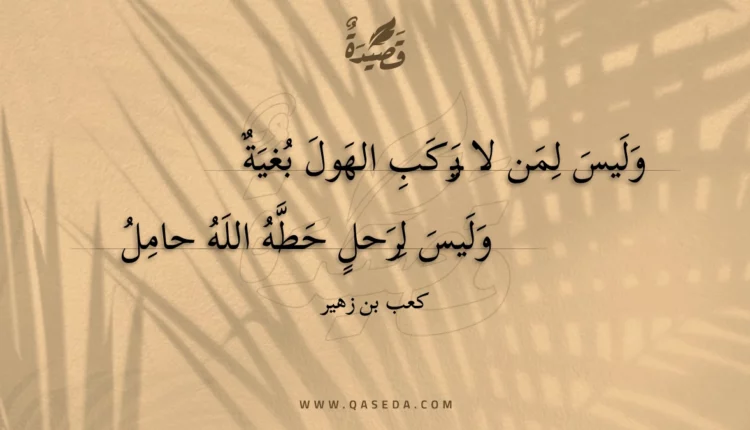 قَصِيدَةٌ
وَلَيسَ لِمَن لا يَركَبِ الهَولَ بُغيَةٌ
وَلَيسَ لِرَحلٍ حَطَّهُ اللَهُ حامِلُ
كعب بن زهير
WWW.QASEDA.COM